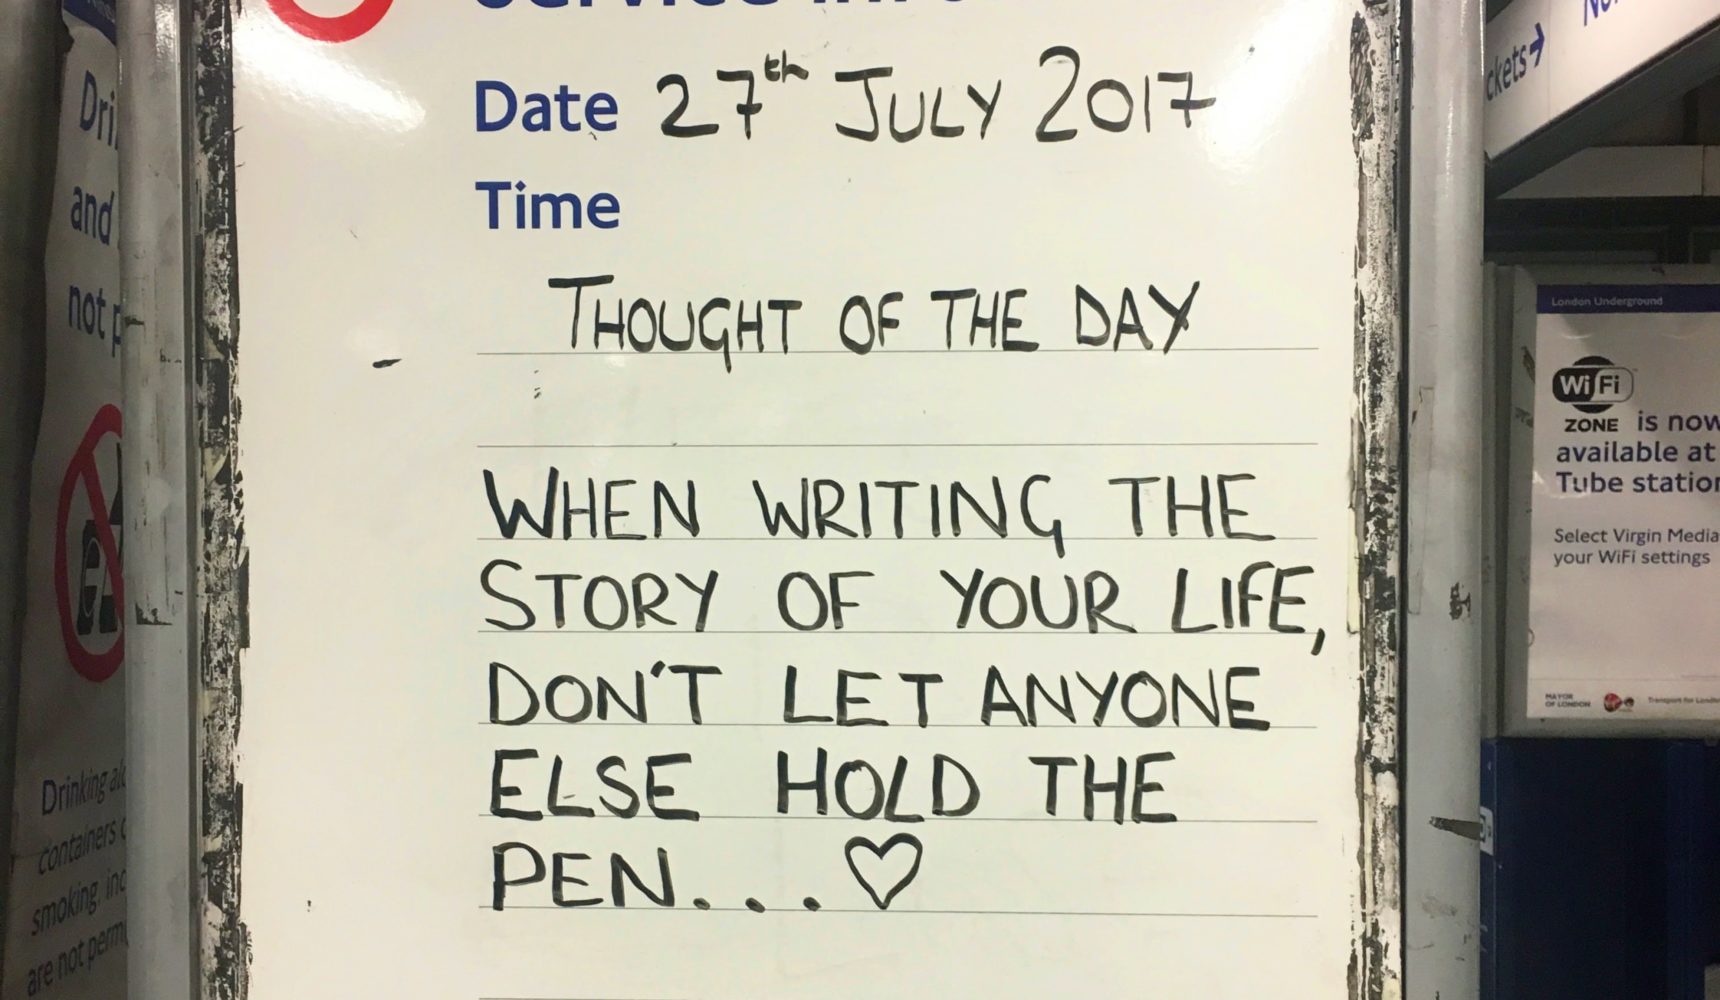 Date 27th JULY 2017
Time
THOUGHT OF THE DAY
WHEN WRITING THE
STORY OF YOUR LIFE,
DON'T LET ANYONE
ELSE HOLD THE
PEN... ♡
and
not
Drinking
containers
smoking,
are not
London Underground
WiFi
ZONE is now
available at
Tube station
Select Virgin Media
your WiFi settings
MAYOR
OF LONDON
Transport for London